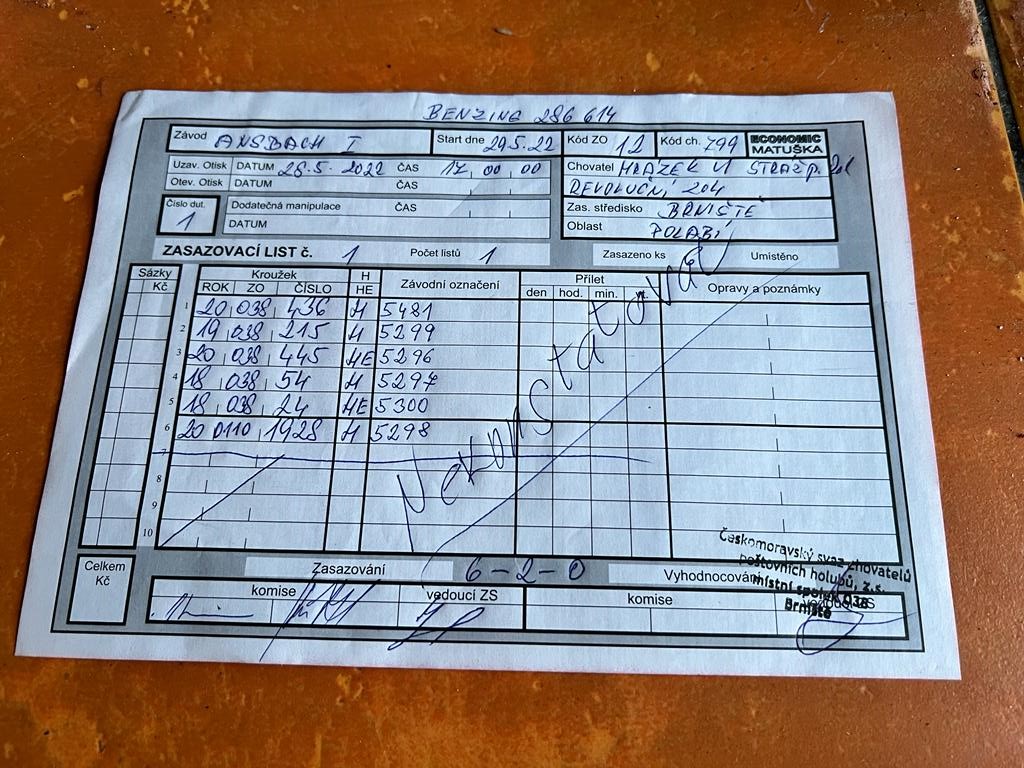 BENZING 286 614
Závod ANSBACH I Start dne 29.5.22 Kód ZO 12 Kód ch. 799 ECONOMIC MATUŠKA
Uzav. Otisk DATUM 28.5. 2022 ČAS 17 00 00
Otev. Otisk DATUM ČAS
Chovatel MRÁZEK Vl STRÁŽ p.
REVOLUČNÍ 204
Číslo dut. 1
Dodatečná manipulace ČAS
DATUM
Zas. středisko BRNIŠTĚ
Oblast POLABÍ
ZASAZOVACÍ LIST č. 1 Počet listů 1 Zasazeno ks Umístěno
Sázky Kč
Kroužek H HE Závodní označení Přílet Opravy a poznámky
ROK ZO ČÍSLO den hod. min.
1 20 038 436 H 5481
2 19 038 215 H 5299
3 20 038 445 HE 5296
4 18 038 54 H 5297
5 18 038 24 HE 5300
6 20 0110 1928 H 5298
7
8
9
10
Nekonstatoval
Celkem Kč
Zasazování 6-2-0 Vyhodnocování
komise vedoucí ZS komise vedoucí ZS
Českomoravský svaz chovatelů
poštovních holubů, z.s.
místní spolek 038
Brniště